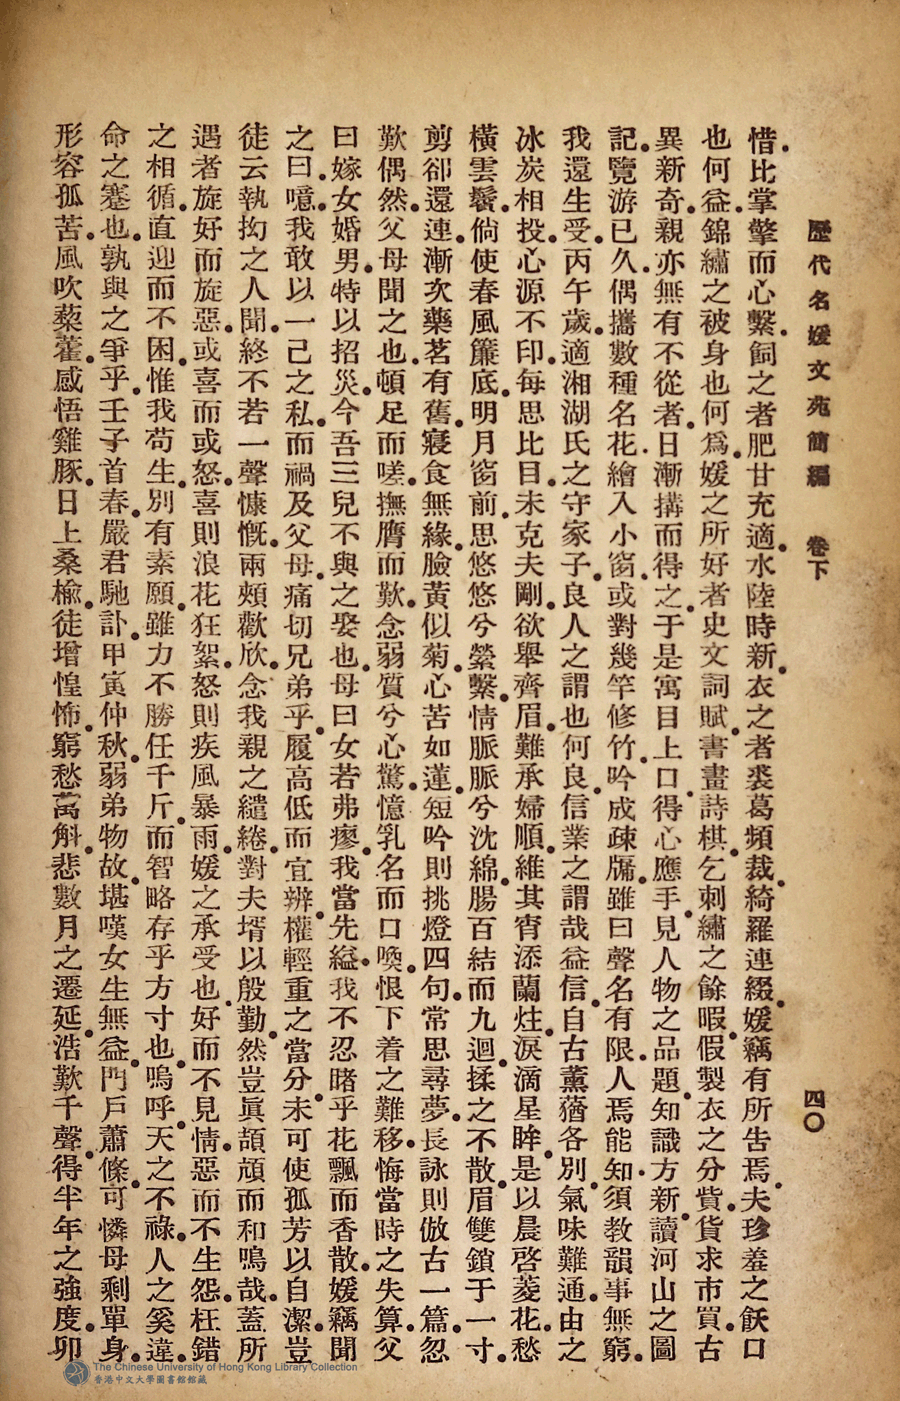 歷代名媛文苑簡編　卷下
四〇
惜．比掌擎而心繫．飼之者肥甘充適．水陸時新．衣之者裘葛頻裁．綺羅連綴．媛竊有所告焉．夫珍羞之飫口
也何益．錦繡之被身也何爲．媛之所好者史文詞賦．書畫詩棋．乞刺繡之餘暇．假製衣之分貲．貨求市買．古
異新奇．親亦無有不從者．日漸搆而得之．于是寓目上口．得心應手．見人物之品題．知識方新．讀河山之圖
記．覽游已久．偶攜數種名花．繪入小窗．或對幾竿修竹．吟成疎牖．雖曰聲名有限．人焉能知．須教韻事無窮．
我還生受．丙午歲．適湘湖氏之守家子．良人之謂也何良．信業之謂哉益信．自古薰蕕各別．氣味難通．由之
冰炭相投．心源不印．每思比目．未克夫剛．欲舉齊眉．難承婦順．維其宵添蘭炷．淚滴星眸．是以晨啓菱花．愁
橫雲鬢．倘使春風簾底．明月窗前．思悠悠兮縈繫．情脈脈兮沈綿．腸百結而九迴．揉之不散．眉雙鎖于一寸．
剪卻還連．漸次藥茗．有舊寢食無緣．臉黃似菊．心苦如蓮．短吟則挑燈四句．常思尋夢．長詠則倣古一篇．忽
歎偶然．父母聞之也．頓足而嗟．撫膺而歎．念弱質兮心驚．憶乳名而口喚．恨下着之難移．悔當時之失算．父
曰嫁女婚男．特以招災．今吾三兒不與之娶也．母曰女若弗瘳．我當先縊．我不忍睹乎花飄而香散．媛竊聞
之曰．噫．我敢以一己之私．而禍及父母．痛切兄弟乎．履高低而宜辨．權輕重之當分．未可使孤芳以自潔．豈
徒云執拗之人聞．終不若一聲慷慨．兩頰歡欣．念我親之繾綣．對夫壻以殷勤．然豈眞頡頏而和鳴哉．蓋所
遇者旋好而旋惡．或喜而或怒．喜則浪花狂絮．怒則疾風暴雨．媛之承受也．好而不見情．惡而不生怨．枉錯
之相循．直迎而不困．惟我苟生．別有素願．雖力不勝任千斤．而智略存乎方寸也．嗚呼．天之不祿．人之奚違．
命之蹇也．孰與之爭乎．壬子首春．嚴君馳訃．甲寅仲秋．弱弟物故．堪嘆女生無益．門戶蕭條．可憐母剩單身．
形容孤苦．風吹藜藿．感悟雞豚．日上桑榆．徒增惶怖．窮愁萬斛．悲數月之遷延．浩歎千聲．得半年之強度．卯
The Chinese University of Hong Kong Library Collection
香港中文大學圖書館館藏